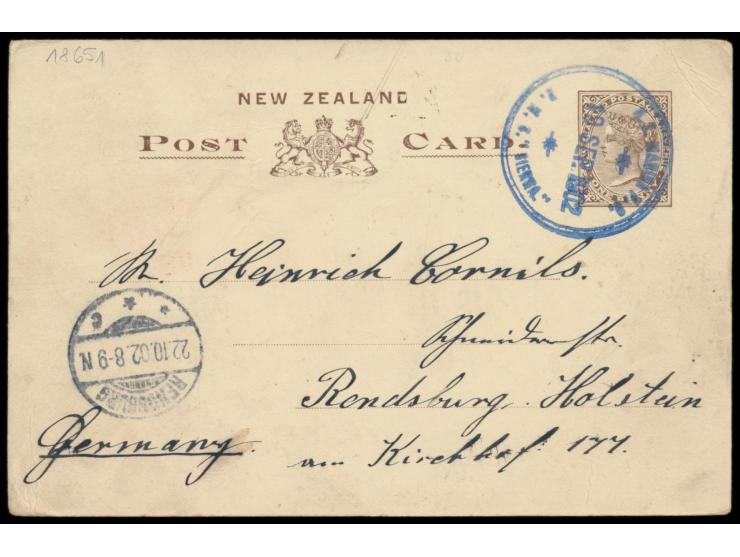 18651
NEW ZEALAND
POST CARD.
ONE PENNY
R.M.S. "SIERRA."
SEP 1902
Mr. Heinrich Cornils.
Schneiderstr.
Rendsburg. Holstein
am Kirchhof 177.
Germany.
RENDSBURG
22.10.02.8-9N